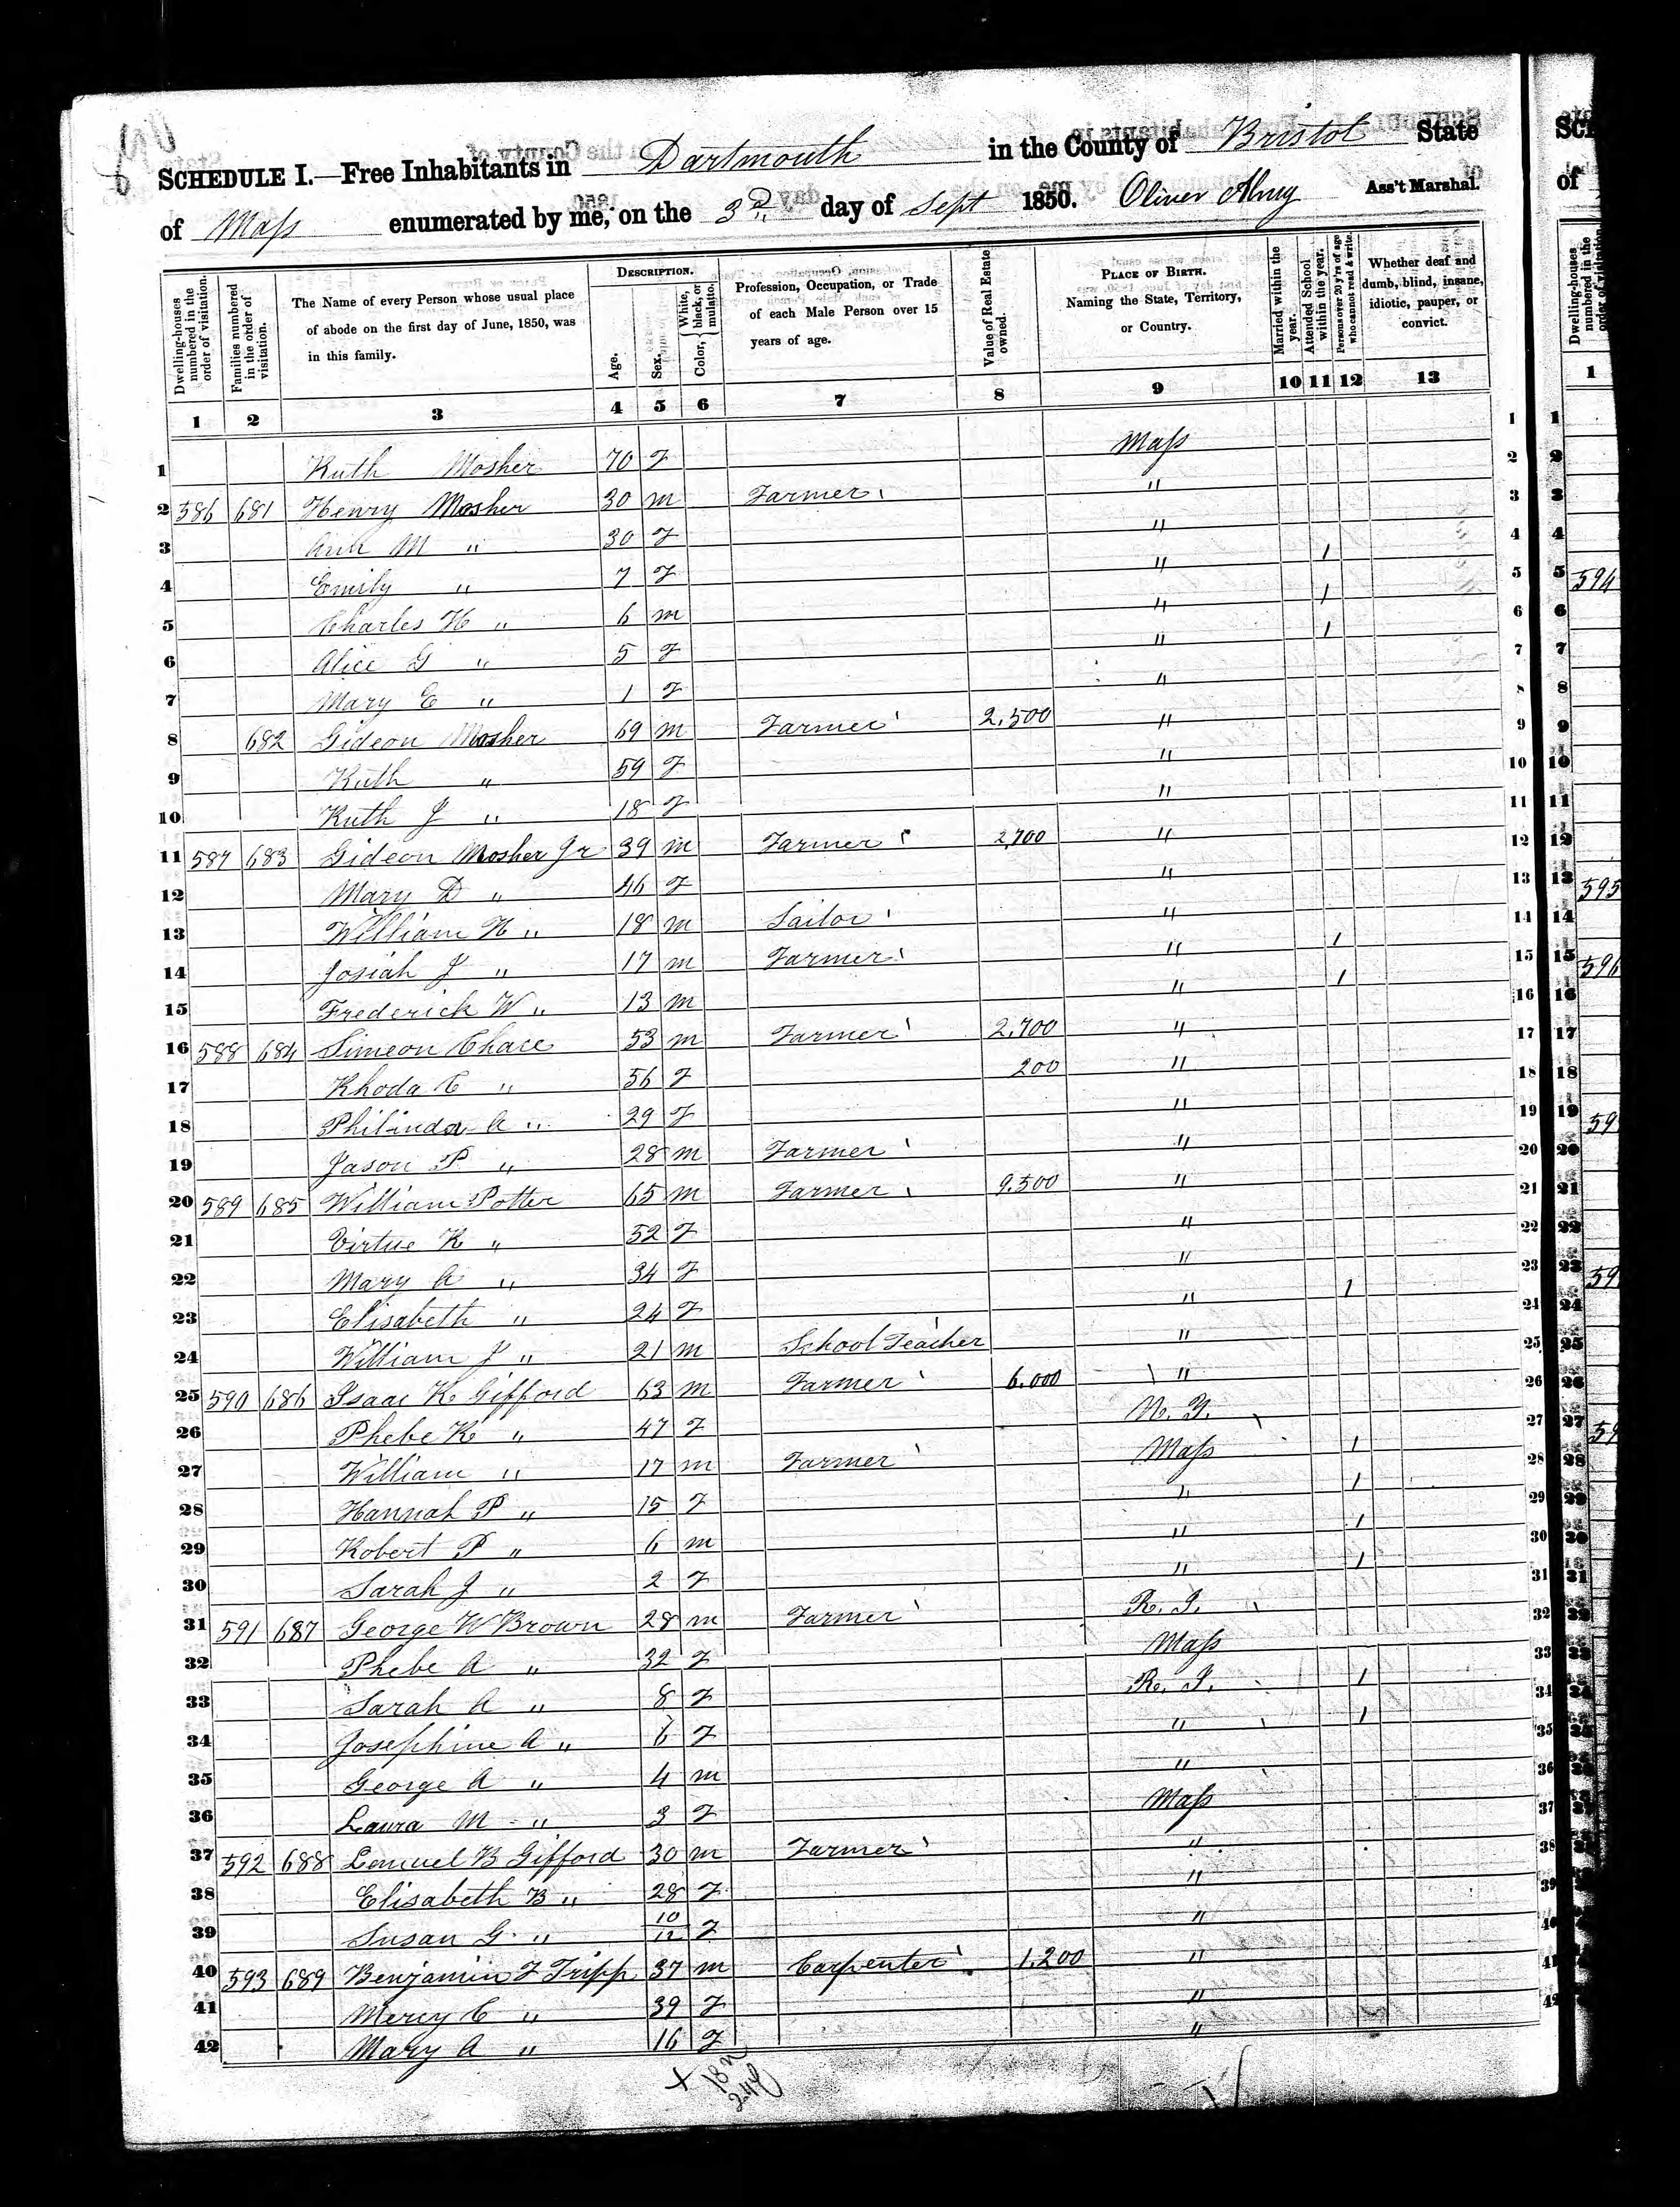 SCHEDULE I.—Free Inhabitants in Dartmouth in the County of Bristol State
of Mass enumerated by me, on the 3D day of Sept 1850. Oliver Almy Ass't Marshal.
Dwelling-houses numbered in the order of visitation. | Families numbered in the order of visitation. | The Name of every Person whose usual place of abode on the first day of June, 1850, was in this family. | DESCRIPTION. Age. | Sex. | Color, { White, black, or mulatto. | Profession, Occupation, or Trade of each Male Person over 15 years of age. | Value of Real Estate owned. | PLACE OF BIRTH. Naming the State, Territory, or Country. | Married within the year. | Attended School within the year. | Persons over 20 y'rs of age who cannot read & write. | Whether deaf and dumb, blind, insane, idiotic, pauper, or convict.
1 2 3 4 5 6 7 8 9 10 11 12 13
1 Ruth Mosher 70 F Mass 1
2 586 681 Henry Mosher 30 m Farmer " 2
3 Ann M " 30 F " 3
4 Emily " 7 F " 1 4
5 Charles H " 6 m " 1 5
6 Alice G " 5 F " 1 6
7 Mary E " 1 F " 7
8 682 Gideon Mosher 69 m Farmer 2,500 " 8
9 Ruth " 59 F " 9
10 Ruth J " 18 F " 10
11 587 683 Gideon Mosher Jr 39 m Farmer 2,700 " 11
12 Mary D " 46 F " 12
13 William H " 18 m Sailor " 13
14 Josiah J " 17 m Farmer " 1 14
15 Frederick W " 13 m " 1 15
16 588 684 Simeon Chace 53 m Farmer 2,700 " 16
17 Rhoda C " 56 F 200 " 17
18 Philinda A " 29 F " 18
19 Jason P " 28 m Farmer " 19
20 589 685 William Potter 65 m Farmer 9.500 " 20
21 Virtue K " 52 F " 21
22 Mary A " 34 F " 22
23 Elisabeth " 24 F " 1 23
24 William J " 21 m School Teacher " 24
25 590 686 Isaac K Gifford 63 m Farmer 6.000 " 25
26 Phebe K " 47 F N. Y. 26
27 William " 17 m Farmer Mass 1 27
28 Hannah P " 15 F " 1 28
29 Robert P " 6 m " 1 29
30 Sarah J " 2 F " 1 30
31 591 687 George W Brown 28 m Farmer R. I. 31
32 Phebe A " 32 F Mass 32
33 Sarah A " 8 F R. I. 1 33
34 Josephine A " 6 F " 1 34
35 George A " 4 m " 35
36 Laura M " 3 F Mass 36
37 592 688 Lemuel B Gifford 30 m Farmer " 37
38 Elisabeth B " 28 F " 38
39 Susan G " 10/12 F " 39
40 593 689 Benjamin F Tripp 37 m Carpenter 1,200 " 40
41 Mercy C " 39 F " 41
42 Mary A " 16 F " 42